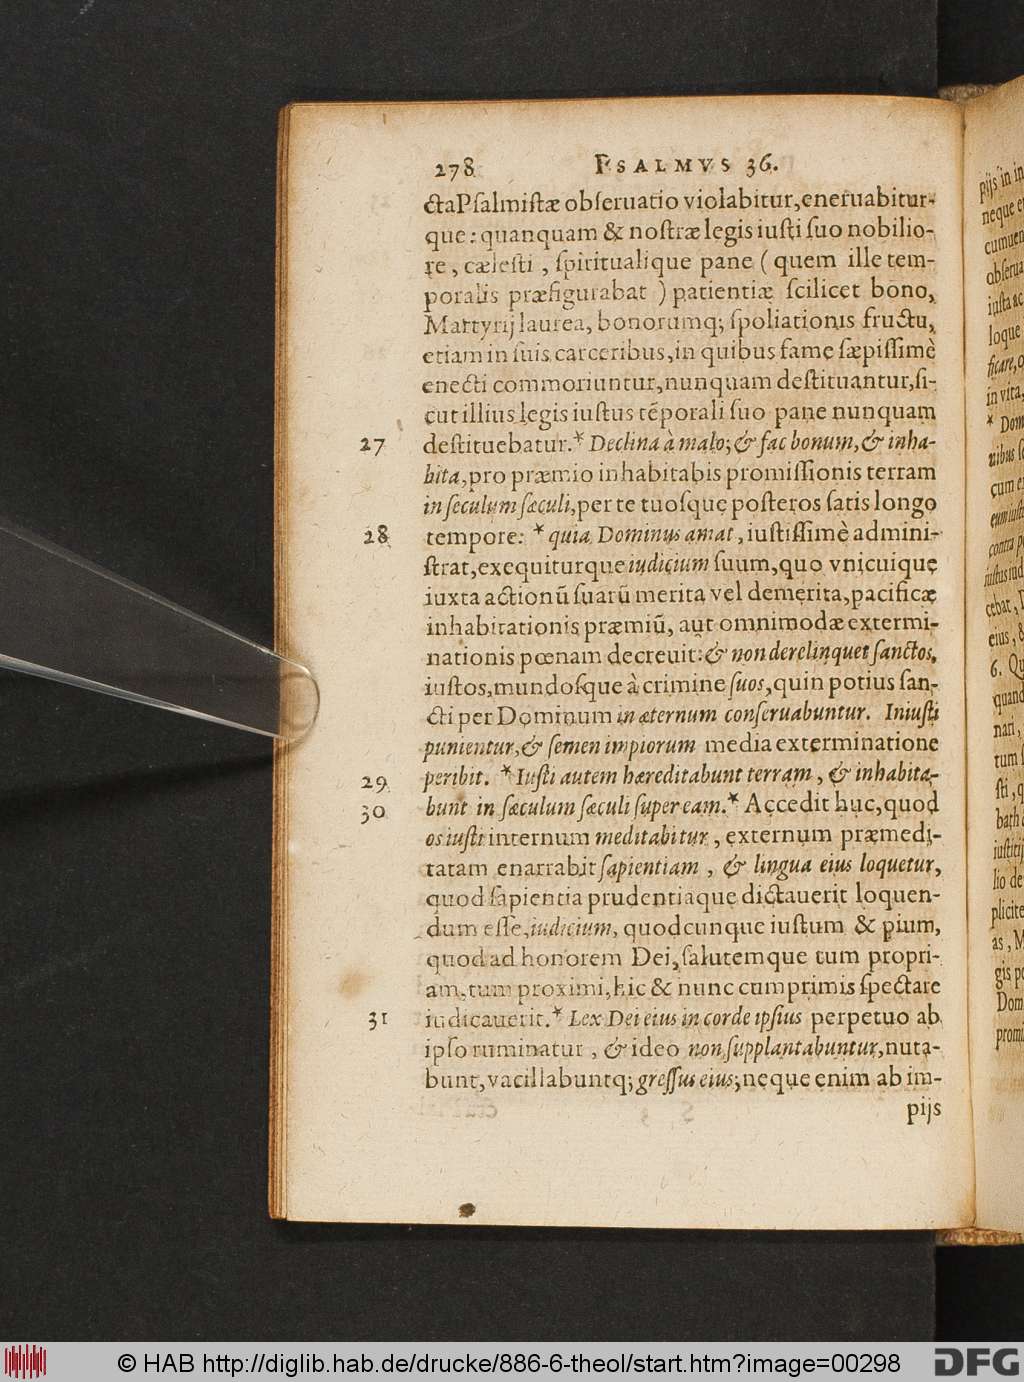 278 PSALMVS 36.
cta Psalmistæ obseruatio violabitur, eneruabitur-
que: quanquam & nostræ legis iusti suo nobilio-
re, cælesti, spiritualique pane ( quem ille tem-
poralis præfigurabat ) patientiæ scilicet bono,
Martyrij laurea, bonorumq; spoliationis fructu,
etiam in suis carceribus, in quibus fame sæpissimè
enecti commoriuntur, nunquam destituantur, si-
cut illius legis iustus tẽporali suo pane nunquam
27 destituebatur.* Declina à malo; & fac bonum, & inha-
bita, pro præmio inhabitabis promissionis terram
in seculum sæculi, per te tuosque posteros satis longo
28 tempore: * quia Dominus amat, iustissimè admini-
strat, exequiturque iudicium suum, quo vnicuique
iuxta actionũ suarũ merita vel demerita, pacificæ
inhabitationis præmiũ, aut omnimodæ extermi-
nationis pœnam decreuit: & non derelinquet sanctos,
iustos, mundosque à crimine suos, quin potius san-
cti per Dominum in æternum conseruabuntur. Iniusti
punientur, & semen impiorum media exterminatione
29 peribit. * Iusti autem hæreditabunt terram, & inhabita-
30 bunt in sæculum sæculi super eam.* Accedit huc, quod
os iusti internum meditabitur, externum præmedi-
tatam enarrabit sapientiam, & lingua eius loquetur,
quod sapientia prudentiaque dictauerit loquen-
dum esse, iudicium, quodcunque iustum & pium,
quod ad honorem Dei, salutemque tum propri-
am, tum proximi, hic & nunc cumprimis spectare
31 iudicauerit.* Lex Dei eius in corde ipsius perpetuo ab
ipso ruminatur, & ideo non supplantabuntur, nuta-
bunt, vacillabuntq; gressus eius; neque enim ab im-
pijs
pijs in in
neque e
cumuen
obserua
iusta ac
loque
ficare, o
in vita,
* Dom
nibus s
cum e
eum iust
contra p
iustus iud
cebat, D
eius, &
6. Qu
quand
nari,
tum s
sti, q
bath a
iustitij
lio de
plicite
as, M
gis po
Dom
promi
© HAB http://diglib.hab.de/drucke/886-6-theol/start.htm?image=00298
DFG